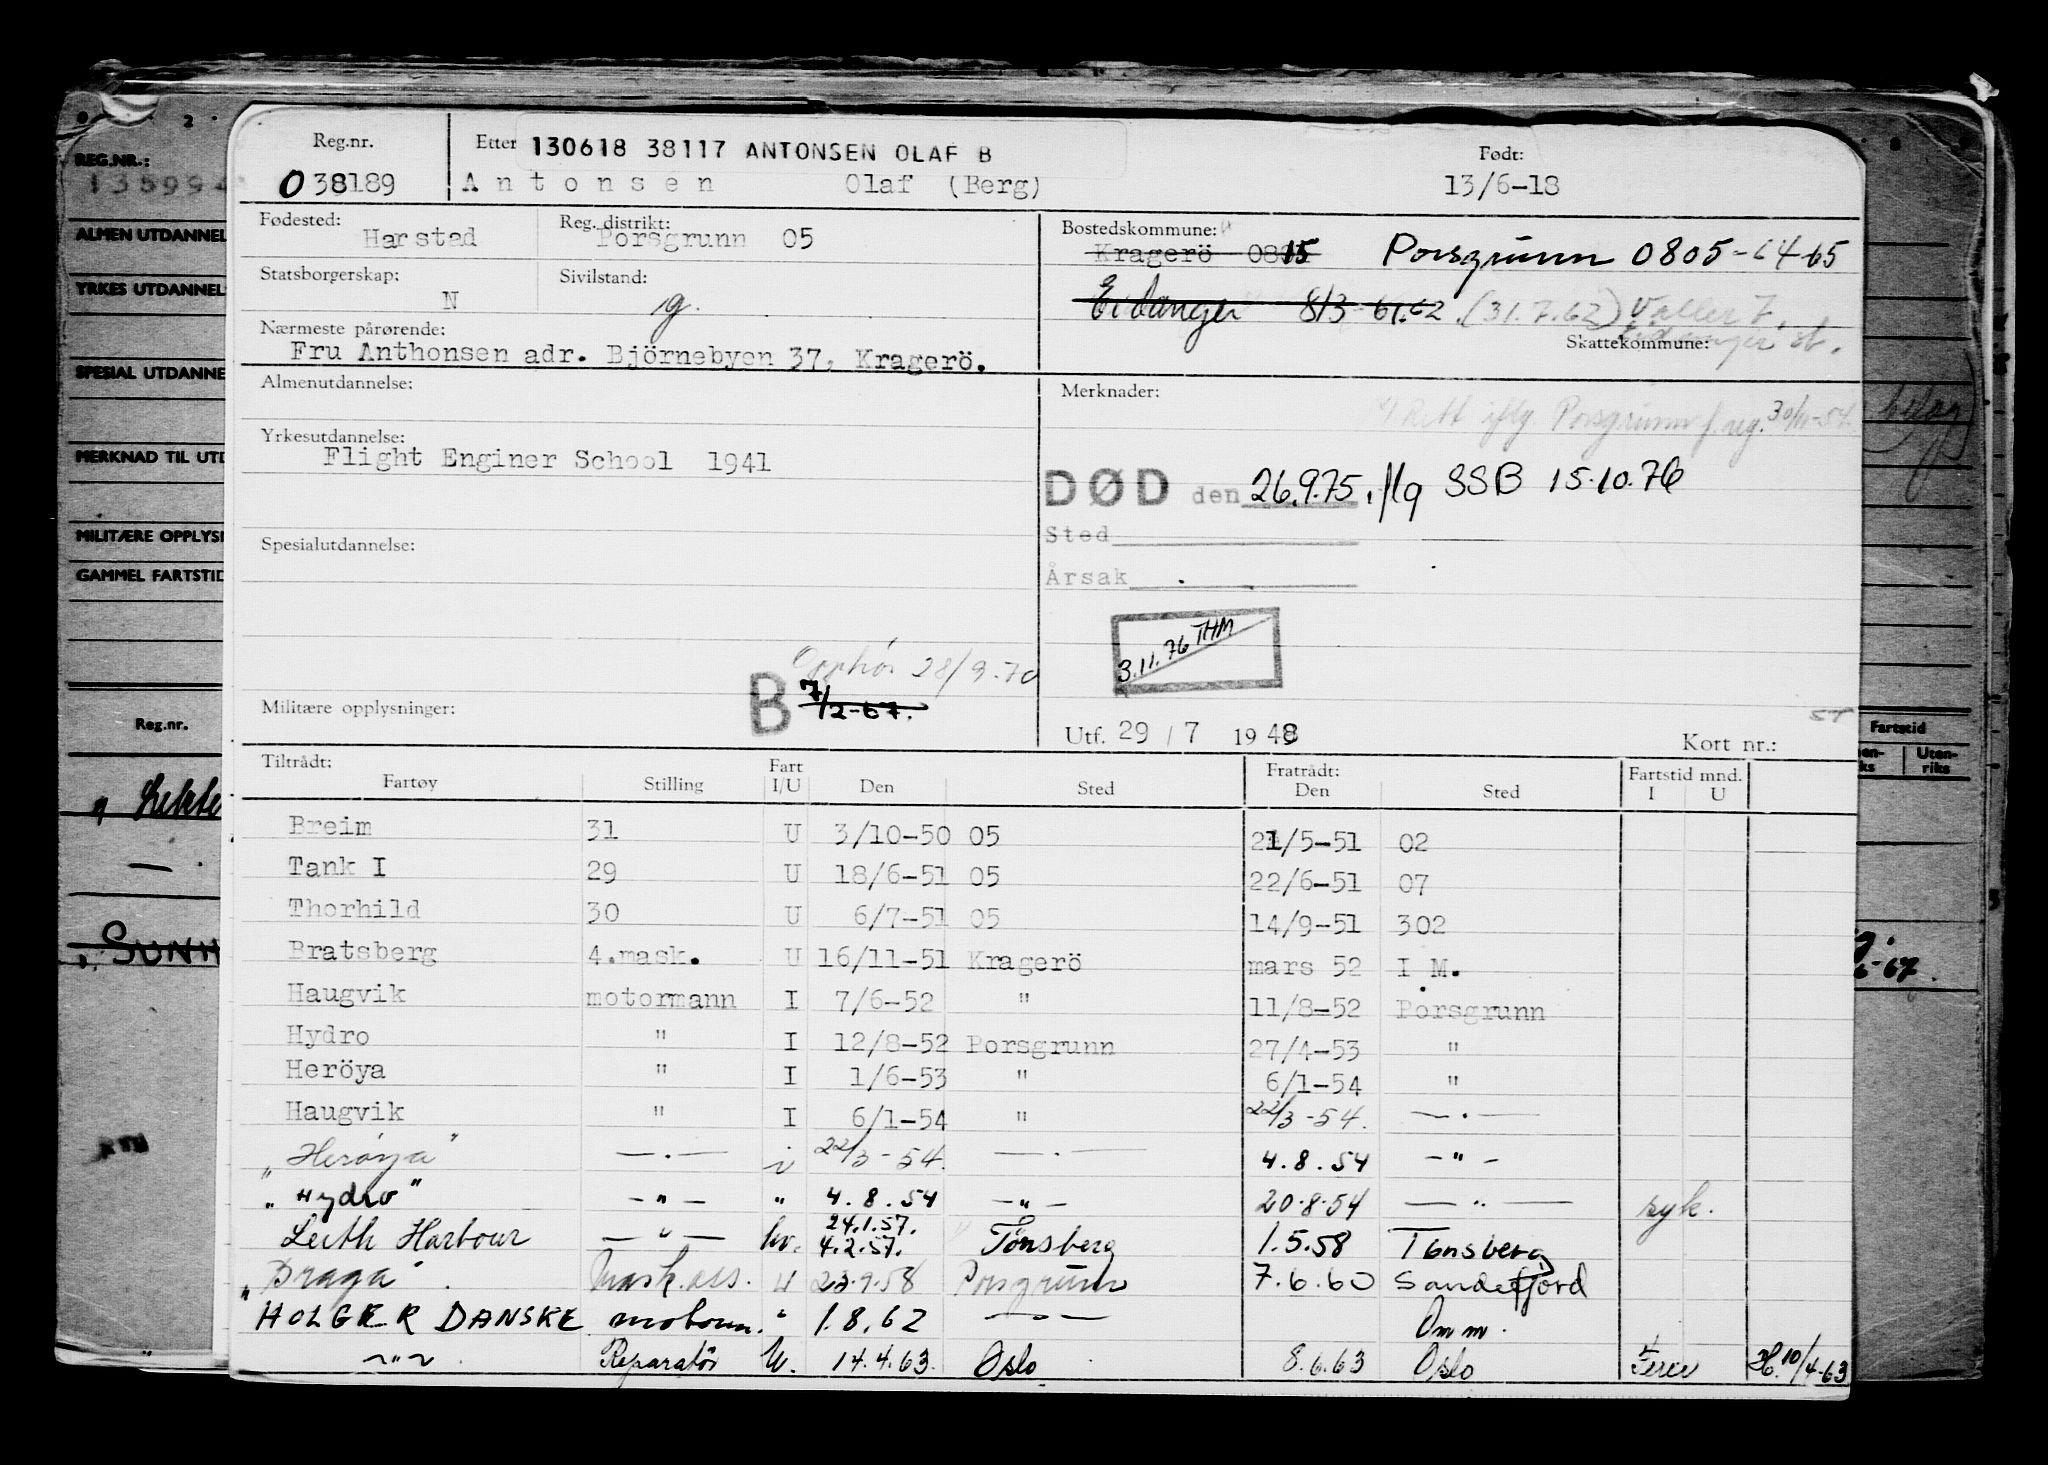 REG.NR.:
ALMEN UTDANNEL
YRKES UTDANNEL
SPESIAL UTDANNE
MERKNAD TIL UTD
MILITÆRE OPPLYSN
GAMMEL FARTSTID
Reg.nr.
Reg.nr. Etter 130618 38117 ANTONSEN OLAF B Født:
038189 Antonsen Olaf (Berg) 13/6-18
Fødested: Harstad Reg. distrikt: Porsgrunn 05 Bostedskommune: Kragerö 0815 Porsgrunn 0805-64-65
Statsborgerskap: N Sivilstand: g. Eidanger 813-61.62 (31.7.62)
Nærmeste pårørende: Skattekommune:
Fru Anthonsen adr. Björnebyen 37, Kragerö.
Almenutdannelse: Merknader:
Rett iflg Porsgrunn f. reg. 30/11-54.
Yrkesutdannelse:
Flight Enginer School 1941
DØD den 26.9.75. iflg SSB 15.10.76
Sted
Spesialutdannelse:
Årsak
3.11.76 THM
Opphör 28/9.70
B 7/2-67.
Militære opplysninger:
Utf. 29/7 1948 Kort nr.:
Tiltrådt: Fratrådt: Fartstid mnd.
Fartøy Stilling Fart I/U Den Sted Den Sted I U
Fartstid
Uten-
riks
Breim 31 U 3/10-50 05 21/5-51 02
Tank I 29 U 18/6-51 05 22/6-51 07
Thorhild 30 U 6/7-51 05 14/9-51 302
Bratsberg 4.mask. U 16/11-51 Kragerö mars 52 I M.
Haugvik motormann I 7/6-52 " 11/8-52 Porsgrunn
Hydro " I 12/8-52 Porsgrunn 27/4-53 "
Heröya " I 1/6-53 " 6/1-54 "
Haugvik " I 6/1-54 " 22/3-54. —.—
"Heröya" —.— i 22/3-54. —.— 4.8.54 -"-
"Hydro" -"- " 4.8.54 -"- 20.8.54 -"- syk.
24.1.57.
Leith Harbour -"- hv. 4.2.57. Tønsberg 1.5.58 Tønsberg
"Draga" Mask.ass. U 23.9.58 Porsgrunn 7.6.60 Sandefjord
HOLGER DANSKE motorm. " 1.8.62 -"- Omm.
-"- Reparatör U. 14.4.63. Oslo 8.6.63 Oslo Ferie 10/4-63